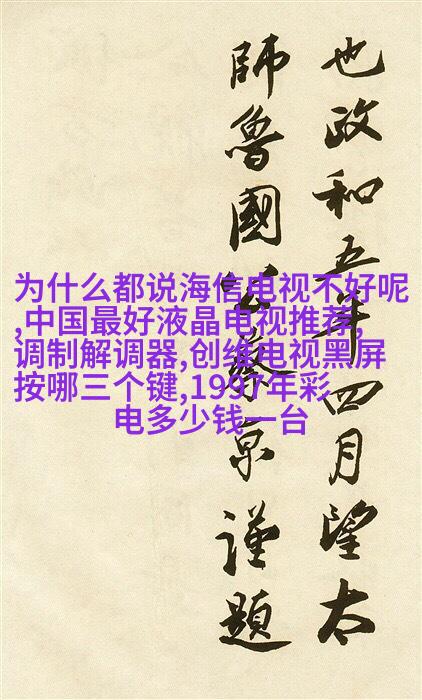 也政和五年四月望太
師魯國公蔡京謹題
为什么都说海信电视不好呢
,中国最好液晶电视推荐,
调制解调器,创维电视黑屏
按哪三个键,1997年彩
电多少钱一台